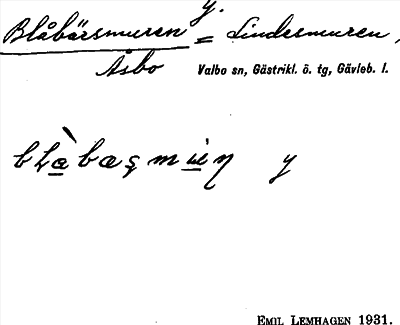 y.
Blåbärsmuren = Lindesmuren,
Åsbo Valbo sn, Gästrikl. ö. tg, Gävleb. l.
y
EMIL LEMHAGEN 1931.